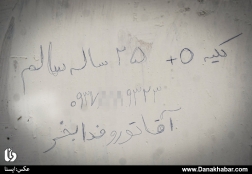 کلیه O+ ۲۵ ساله سالم
آقا تورو خدا بخر
عکس: ایسنا
www.Danakhabar.com